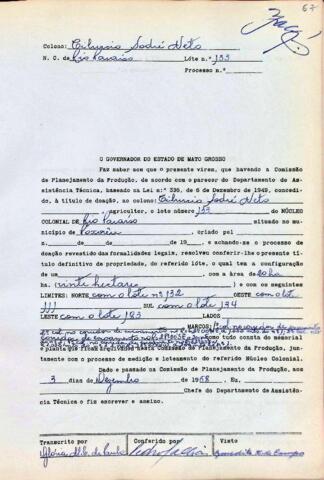 67
Colono: Tiburcio Sodré Neto
N. C. de Rio Paraiso Lóte n.º 133
Processo n.º
O GOVERNADOR DO ESTADO DE MATO GROSSO
Faz saber aos que o presente virem, que havendo a Comissão
de Planejamento da Produção, de acordo com o parecer do Departamento de As-
sistência Técnica, baseado na Lei n.º 336, de 6 de Dezembro de 1949, concedi-
do, à título de doação, ao colono Tiburcio Sodré Neto
agricultor, o lote número 133 do NÚCLEO
COLONIAL DE Rio Paraiso situado no mu-
nicípio de Poxoréu, criado pel
de de de 19 , e achando-se o processo de
doação revestido das formalidades legais, resolveu conferir-lhe o presente tí-
tulo definitivo de propriedade, do referido lóte, o qual tem a configuração
de um com a área de 20 ha
ha. (vinte hectares) e com os seguintes
LIMITES: NORTE com o lote nº 132 OESTE com o lote
111 SUL com o lote 134
LESTE com o lote 183 com
MARCOS:
tudo consta do memorial
e planta que ficam arquivados nesta Comissão de Planejamento da Produção, jun-
tamente com o processo de medição e loteamento do referido Núcleo Colonial.
Dado e passado na Comissão de Planejamento da Produção, aos
3 dias de Dezembro de 1958, Eu,
Chefe do Departamento de Assistên-
cia Técnica o fiz escrever e assino.
Transcrito por Conferido por Visto